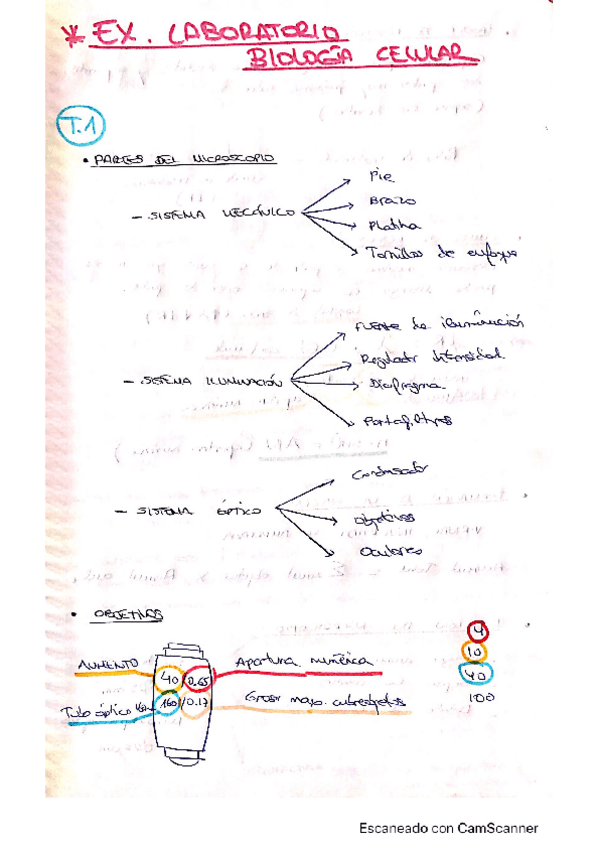 * EX. LABORATORIO
BIOLOGÍA CELULAR
T.1
• PARTES DEL MICROSCOPIO
Pie
Brazo
- SISTEMA MECÁNICO
Platina
Tornillos de enfoque
Fuente de iluminación
Regulador intensidad
- SISTEMA ILUMINACIÓN
Diafragma
Portafiltros
Condensador
- SISTEMA ÓPTICO
Objetivos
Oculares
• OBJETIVOS
4
AUMENTO
40 0.65
Apertura numérica
10
40
Tubo óptico
160/0.17
Grosor cubreobjetos
100
Escaneado con CamScanner